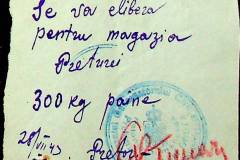 Se va elibera
pentru magazia
Preturei
300 kg paine
28/VII 43
Pretor